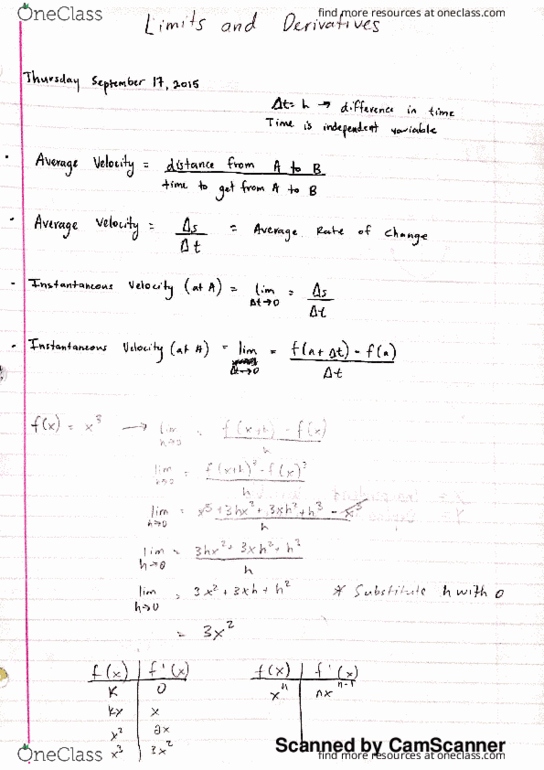 OneClass
find more resources at oneclass.com
Limits and Derivatives
Thursday September 17, 2015
Δt = h → difference in time
Time is independent variable
• Average Velocity = distance from A to B / time to get from A to B
• Average Velocity = Δs / Δt = Average Rate of Change
• Instantaneous Velocity (at A) = lim Δt→0 = Δs / Δt
• Instantaneous Velocity (at A) = lim Δt→0 = f(a+Δt) - f(a) / Δt
f(x) = x³ → lim h→0 = f(x+h) - f(x) / h
lim h→0 = f(x+h)³ - f(x)³ / h
lim h→0 = x³ + 3hx² + 3xh² + h³ - x³ / h
lim h→0 = 3hx² + 3xh² + h³ / h
lim h→0 = 3x² + 3xh + h² * Substitute h with 0
= 3x²
f(x) | f'(x) f(x) | f'(x)
K | 0 xⁿ | nxⁿ⁻¹
kx | x
x² | 2x
x³ | 3x²
Scanned by CamScanner
OneClass
find more resources at oneclass.com